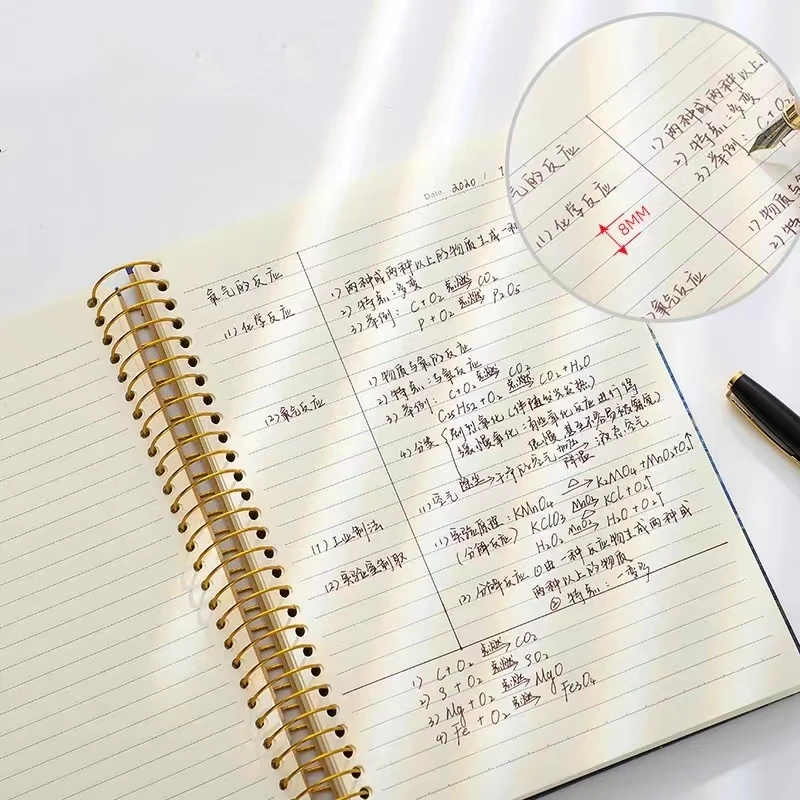 Date 2020 / 1
氧气的反应
(1) 化学反应
1) 两种或两种以上的物质生成一种
2) 特点:多变一
3) 举例: C+O2 点燃→ CO2
P+O2 点燃→ P2O5
(2) 氧气反应
1) 物质与氧的反应
2) 特点:与氧反应
3) 举例: C+O2 点燃→ CO2
C25H52+O2 点燃→ CO2+H2O
4) 分类 { 剧烈氧化(伴随发光发热)
缓慢氧化:有些氧化反应进行得
很慢 甚至不容易被察觉)
(1) 工业制法
(1) 空气 除尘→ 干净的空气 加压→ 液态空气
降温
(2) 实验室制取
(1) 实验原理: KMnO4 △→ K2MnO4+MnO2+O2↑
(分解反应) KClO3 MnO2 △→ KCl+O2↑
H2O2 MnO2→ H2O+O2↑
(2) 分解反应 ①由一种反应物生成两种或
两种以上的物质
② 特点:一变多
1) C+O2 点燃→ CO2
2) S+O2 点燃→ SO2
3) Mg+O2 点燃→ MgO
4) Fe+O2 点燃→ Fe3O4
气的反应
(1) 化学反应
1) 两种或两种以上的
2) 特点:多变
3) 举例: C+O2
8MM
1) 物质与
2) 特
氧气反应